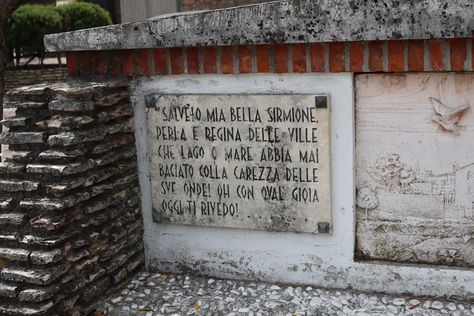 SALVE, O MIA BELLA SIRMIONE,
PERLA E REGINA DELLE VILLE
CHE LAGO O MARE ABBIA MAI
BACIATO COLLA CAREZZA DELLE
SVE ONDE! OH CON QVAL GIOIA
OGGI TI RIVEDO!